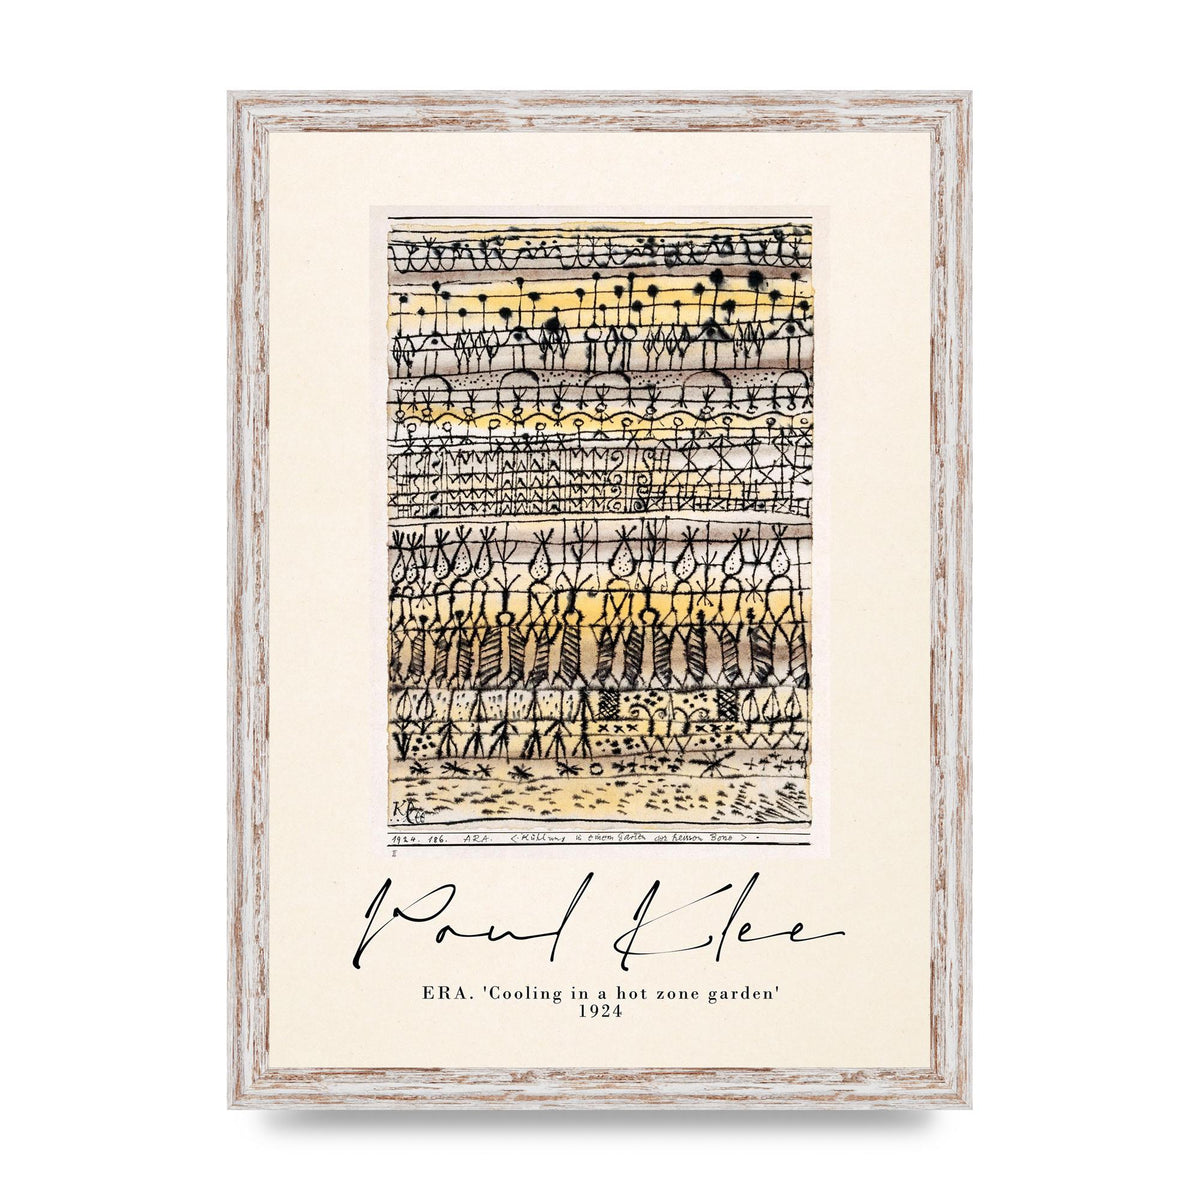 Klee
1924. 186. ARA. <Kühlung in einem Garten der heissen Zone>.
II
Paul Klee
ERA. 'Cooling in a hot zone garden'
1924